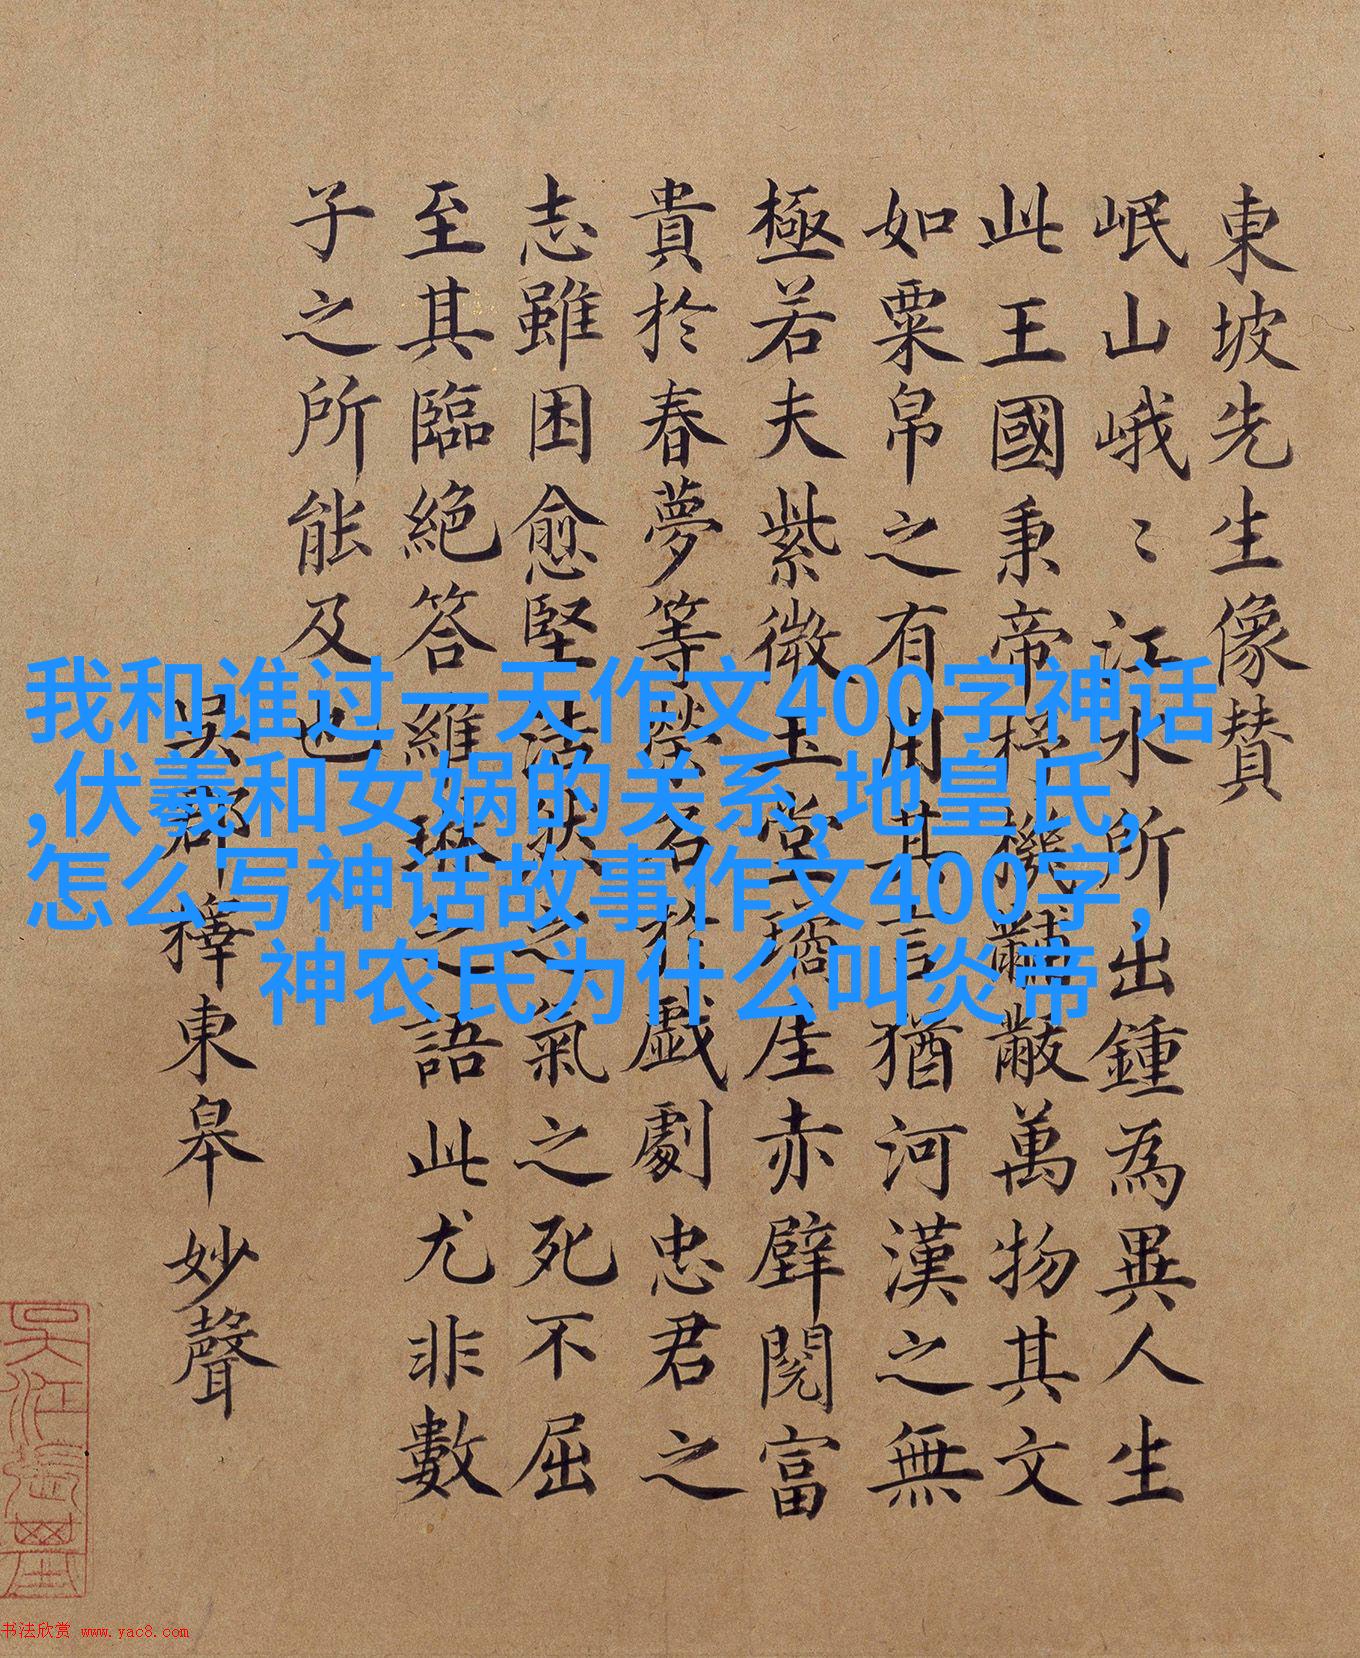 東坡先生像贊
岷山峨〻江水所出鍾為異人生
此王國秉帝杼機黼黻萬物其文
如粟帛之有用其言猶河漢之無
極若夫紫微玉堂瓊崖赤壁閱富
貴於春夢等榮名於戲劇忠君之
志雖困愈堅浩然之氣之死不屈
至其臨絕答維琳之語此尤非數
子之所能及也
吳郡釋東皋妙聲
我和谁过一天作文400字神话
,伏羲和女娲的关系,地皇氏,
怎么写神话故事作文400字,
神农氏为什么叫炎帝
书法欣赏 www.yac8.com